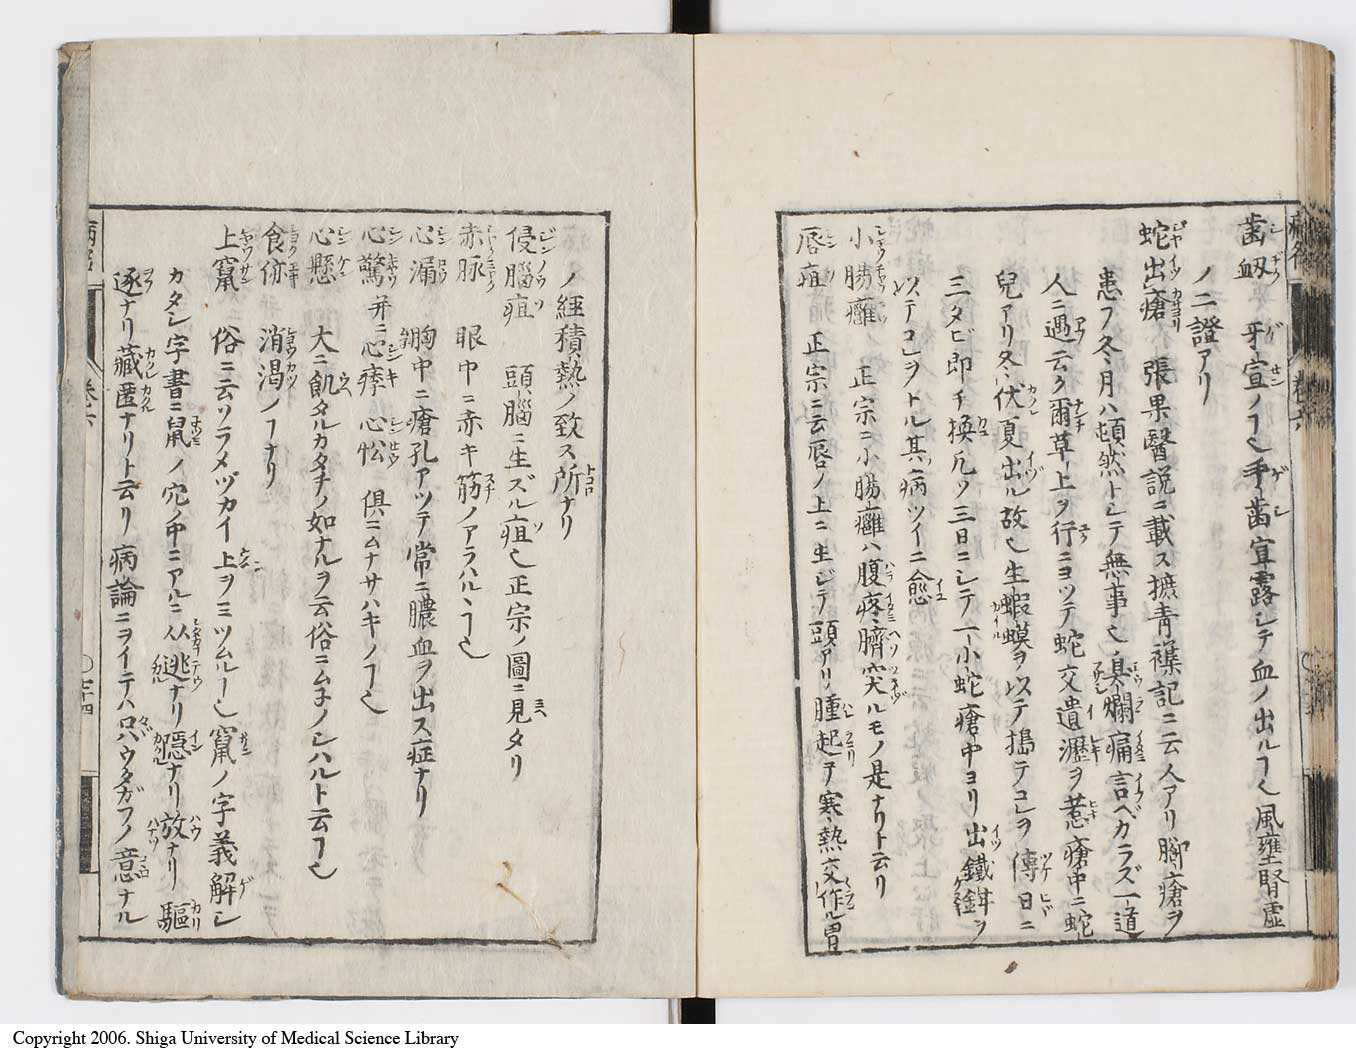 歯衂 牙宣ノ﹁也手歯宣露シテ血ノ出ル﹁也風壅腎虚
ノ二證アリ
蛇出瘡 張果醫説ニ載ス摭青襍記ニ云人アリ脚瘡ヲ
患フ冬月ハ頓然トシテ無事也臭爛痛言ベカラズ一道
人ニ遇云ク爾草上ヲ行ニヨツテ蛇交遺瀝ヲ惹瘡中ニ蛇
兒アリ冬ハ伏夏出ル故也生蝦蟆ヲ以テ搗テコレヲ傳日ニ
三タビ即チ換凡ソ三日ニシテ一小蛇瘡中ヨリ出鐵鉗ヲ
以テコレヲトル其病ツイニ愈
小腸癰 正宗ニ小腸癰ハ腹疼臍突ルモノ是ナリト云リ
唇疽 正宗ニ云唇ノ上ニ生ジテ頭アリ腫起ヲ寒熱交作ル胃
ノ経積熱ノ致ス所ナリ
侵腦疽 頭腦ニ生ズル疽也正宗ノ圖ニ見タリ
赤脉 眼中ニ赤キ筋ノアラハルヽ﹁也
心漏 胸中ニ瘡孔アツテ常ニ膿血ヲ出ス症ナリ
心驚 并ニ心瘈心忪 倶ニムナサハキノ﹁也
心懸 大ニ飢タルカタチノ如ナルヲ云俗ニムネノシハルト云﹁也
食㑊 消渇ノ﹁ナリ
上竄 俗ニ云ソラメヅカイ上ヲミツムル﹁也竄ノ字義解シ
カタシ字書ニ鼠ノ穴ノ中ニアルニ从逃ナリ隠ナリ放ナリ驅
逐ナリ藏匿ナリト云リ病論ニヲイテハロハウタガフノ意ナル
病名 巻六 ○七十四